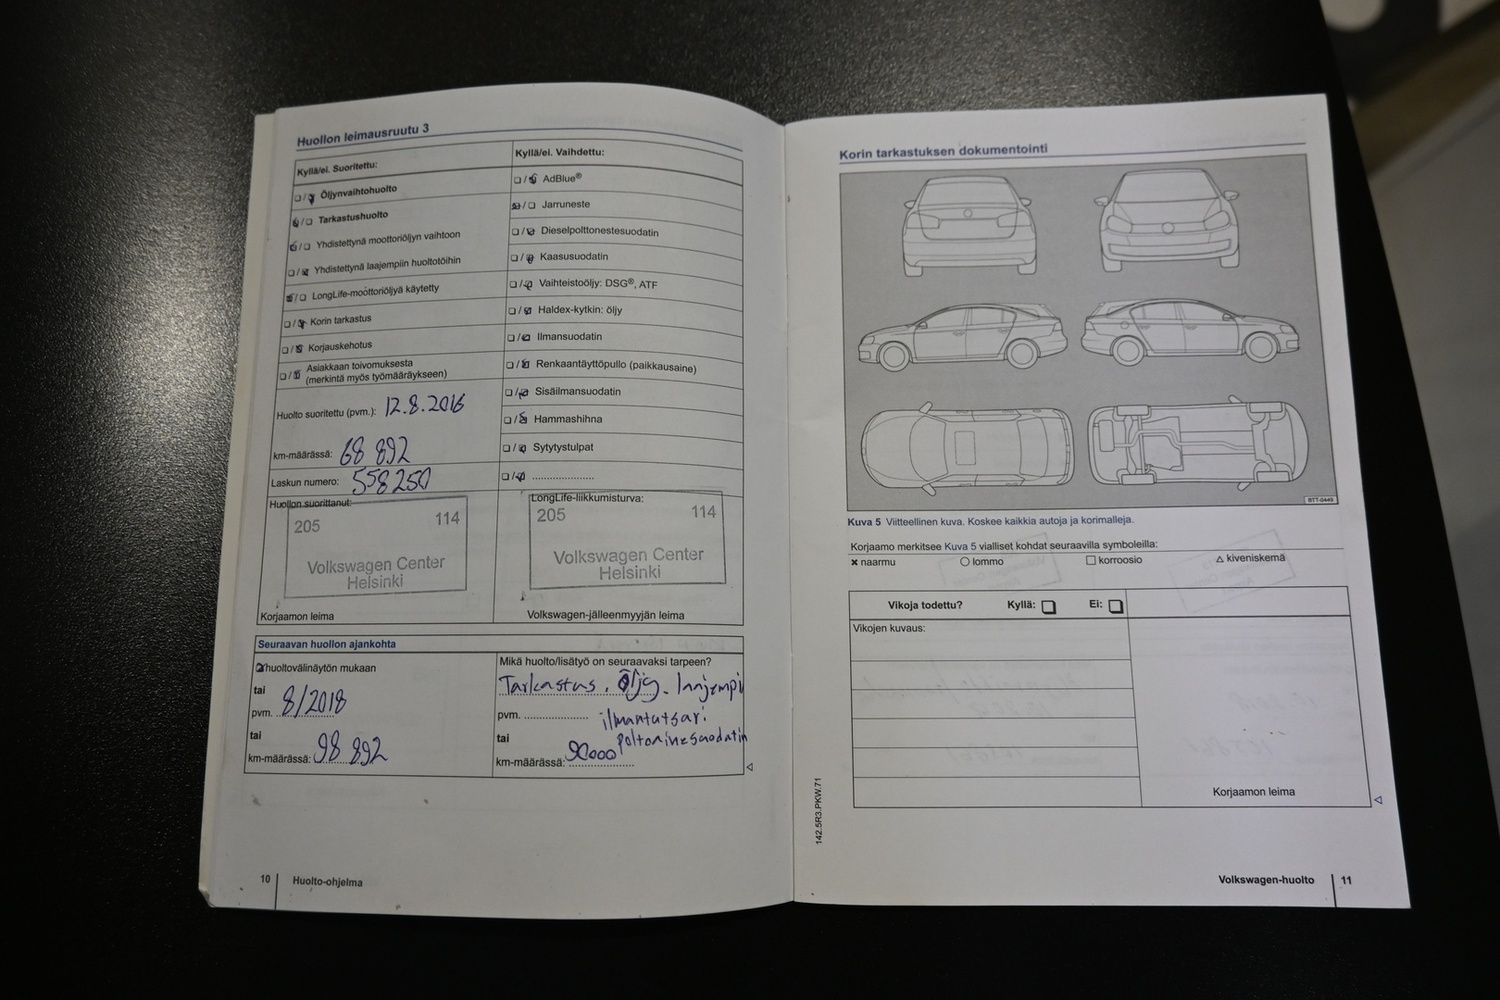 Huollon leimausruutu 3
Kyllä/ei. Suoritettu:
Öljynvaihtohuolto
Tarkastushuolto
Yhdistettynä moottoriöljyn vaihtoon
Yhdistettynä laajempiin huoltotöihin
LongLife-moottoriöljyä käytetty
Korin tarkastus
Korjauskehotus
Asiakkaan toivomuksesta
(merkintä myös työmääräykseen)
Huolto suoritettu (pvm.): 12.8.2016
km-määrässä: 68 892
Laskun numero: 558250
Huollon suorittanut:
205 114
Volkswagen Center
Helsinki
Korjaamon leima
Kyllä/ei. Vaihdettu:
AdBlue®
Jarruneste
Dieselpolttonestesuodatin
Kaasusuodatin
Vaihteistoöljy: DSG®, ATF
Haldex-kytkin: öljy
Ilmansuodatin
Renkaantäyttöpullo (paikkausaine)
Sisäilmansuodatin
Hammashihna
Sytytystulpat
LongLife-liikkumisturva:
205 114
Volkswagen Center
Helsinki
Volkswagen-jälleenmyyjän leima
Seuraavan huollon ajankohta
huoltovälinäytön mukaan
tai
pvm. 8/2018
tai
km-määrässä: 98 892
Mikä huolto/lisätyö on seuraavaksi tarpeen?
Tarkastus, Öljy, laajempi
pvm.
tai
km-määrässä: 90000
10 Huolto-ohjelma
Korin tarkastuksen dokumentointi
BTT-0449
Kuva 5 Viitteellinen kuva. Koskee kaikkia autoja ja korimalleja.
Korjaamo merkitsee Kuva 5 vialliset kohdat seuraavilla symboleilla:
✖ naarmu ○ lommo □ korroosio △ kiveniskemä
Vikoja todettu? Kyllä: Ei:
Vikojen kuvaus:
Korjaamon leima
142.5R3.PKW.71
Volkswagen-huolto 11